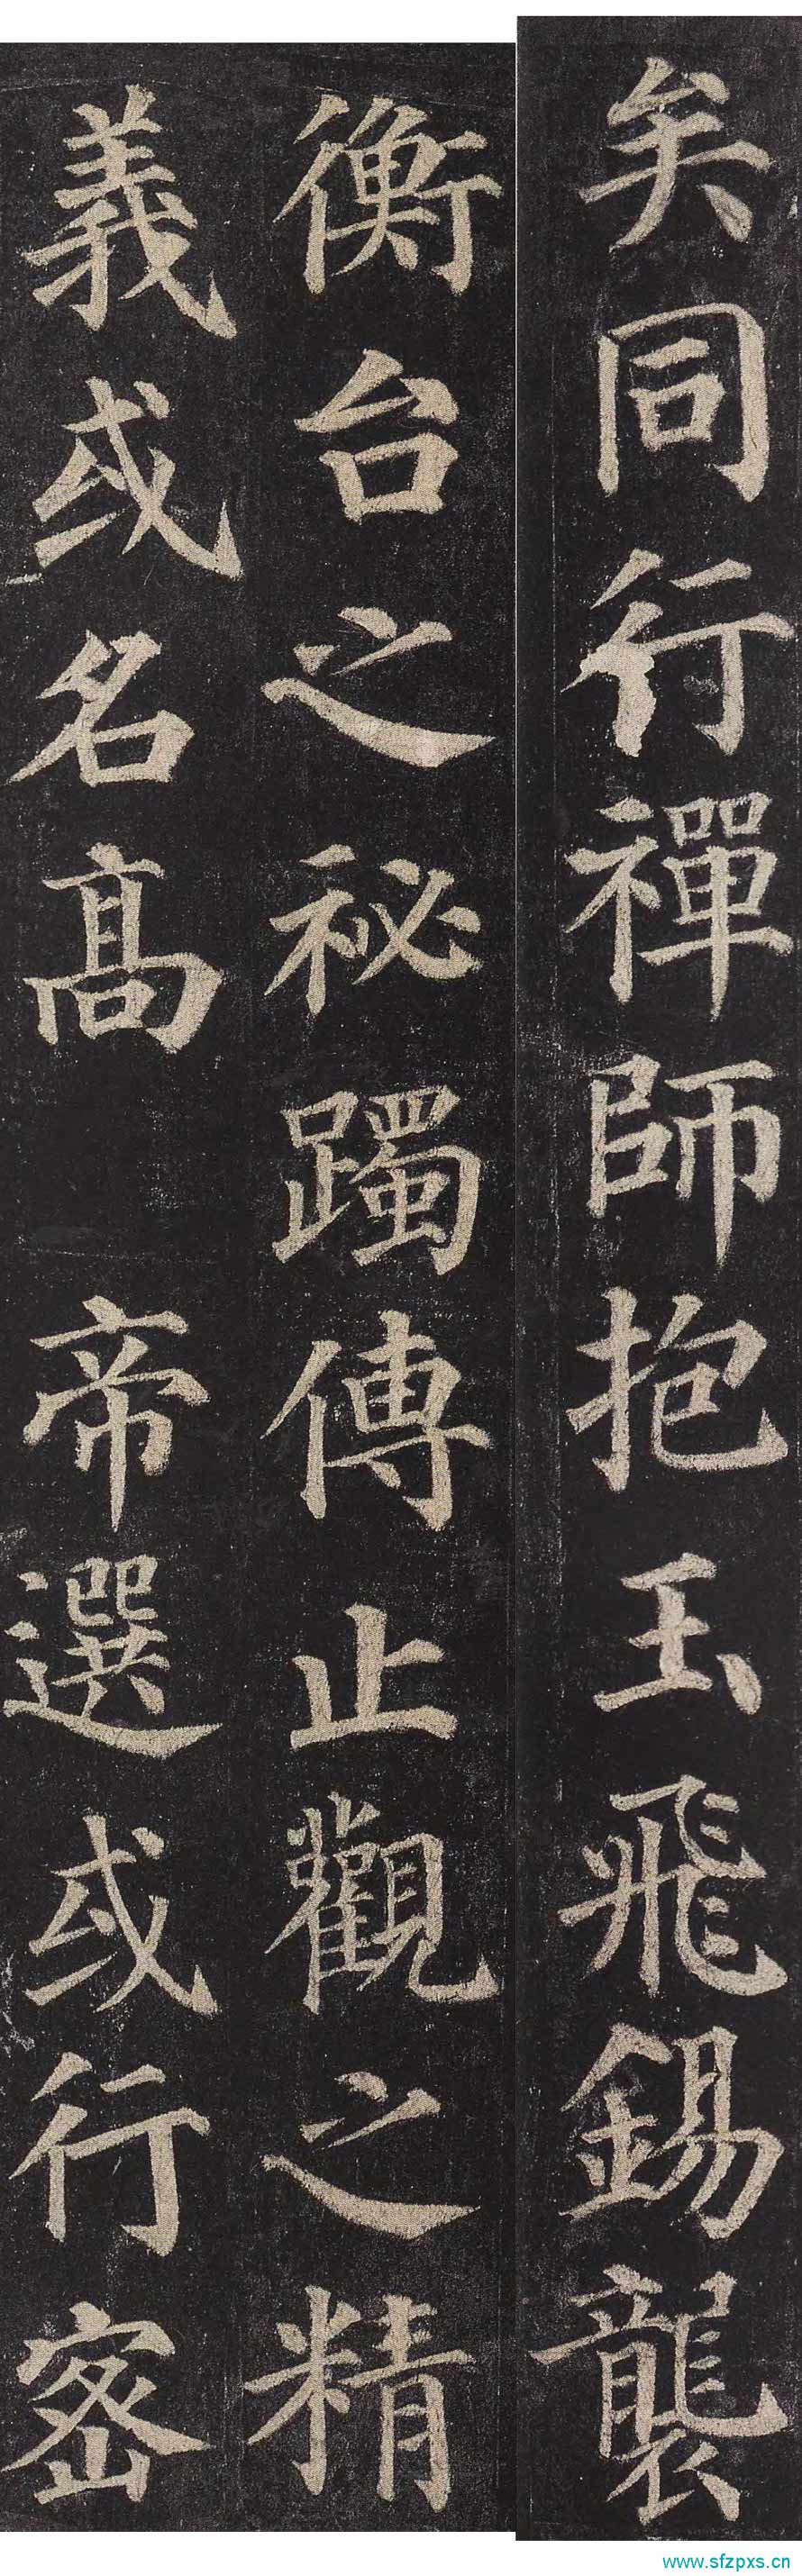 矣同行禪師抱玉飛錫襲
衡台之祕躅傳止觀之精
義或名高 帝選或行密
www.sfzpxs.cn